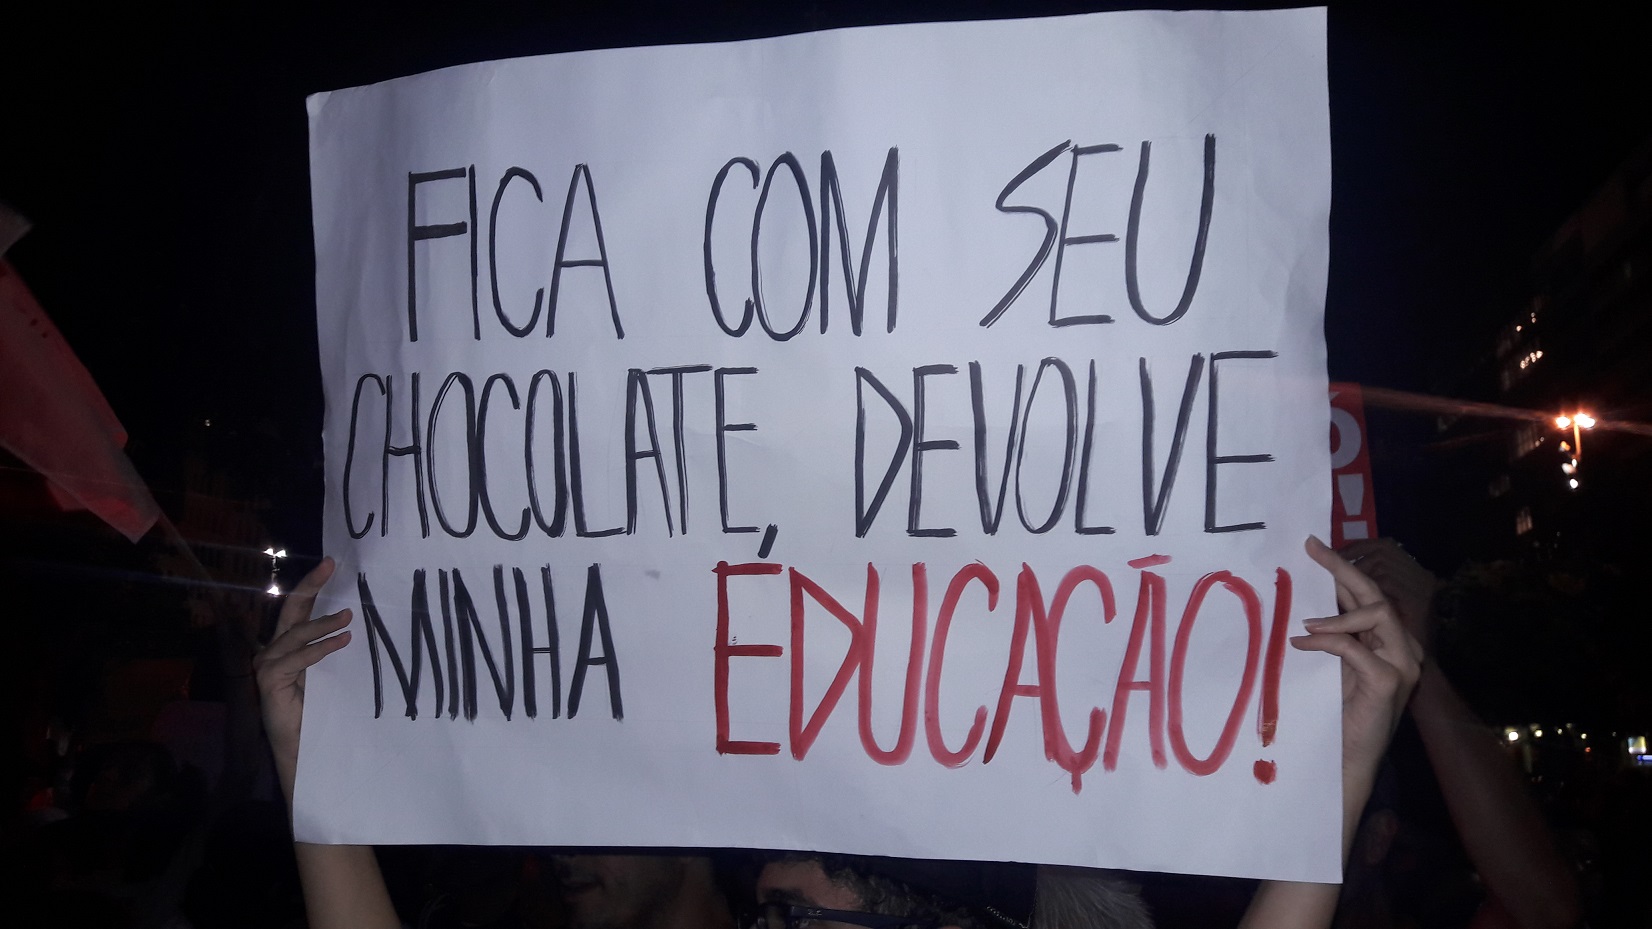 FICA COM SEU
CHOCOLATE, DEVOLVE
MINHA EDUCAÇÃO!
O!